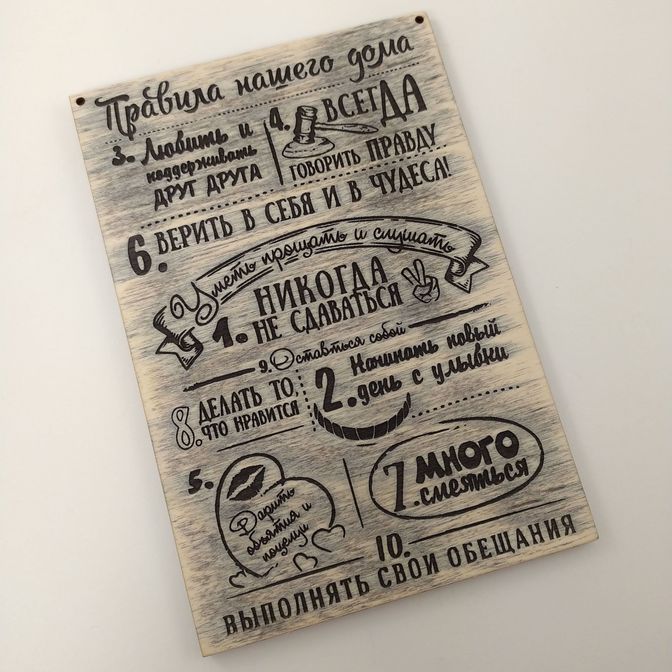 Правила нашего дома
3. Любить и
поддерживать
ДРУГ ДРУГА
4. ВСЕГДА
ГОВОРИТЬ ПРАВДУ
6. ВЕРИТЬ В СЕБЯ И В ЧУДЕСА!
Уметь прощать и слушать
1. НИКОГДА
НЕ СДАВАТЬСЯ
9. Оставаться собой
8. ДЕЛАТЬ ТО,
ЧТО НРАВИТСЯ
2. Начинать новый
день с улыбки
5.
Дарить
объятия и
поцелуи
7. МНОГО
смеяться
10.
ВЫПОЛНЯТЬ СВОИ ОБЕЩАНИЯ